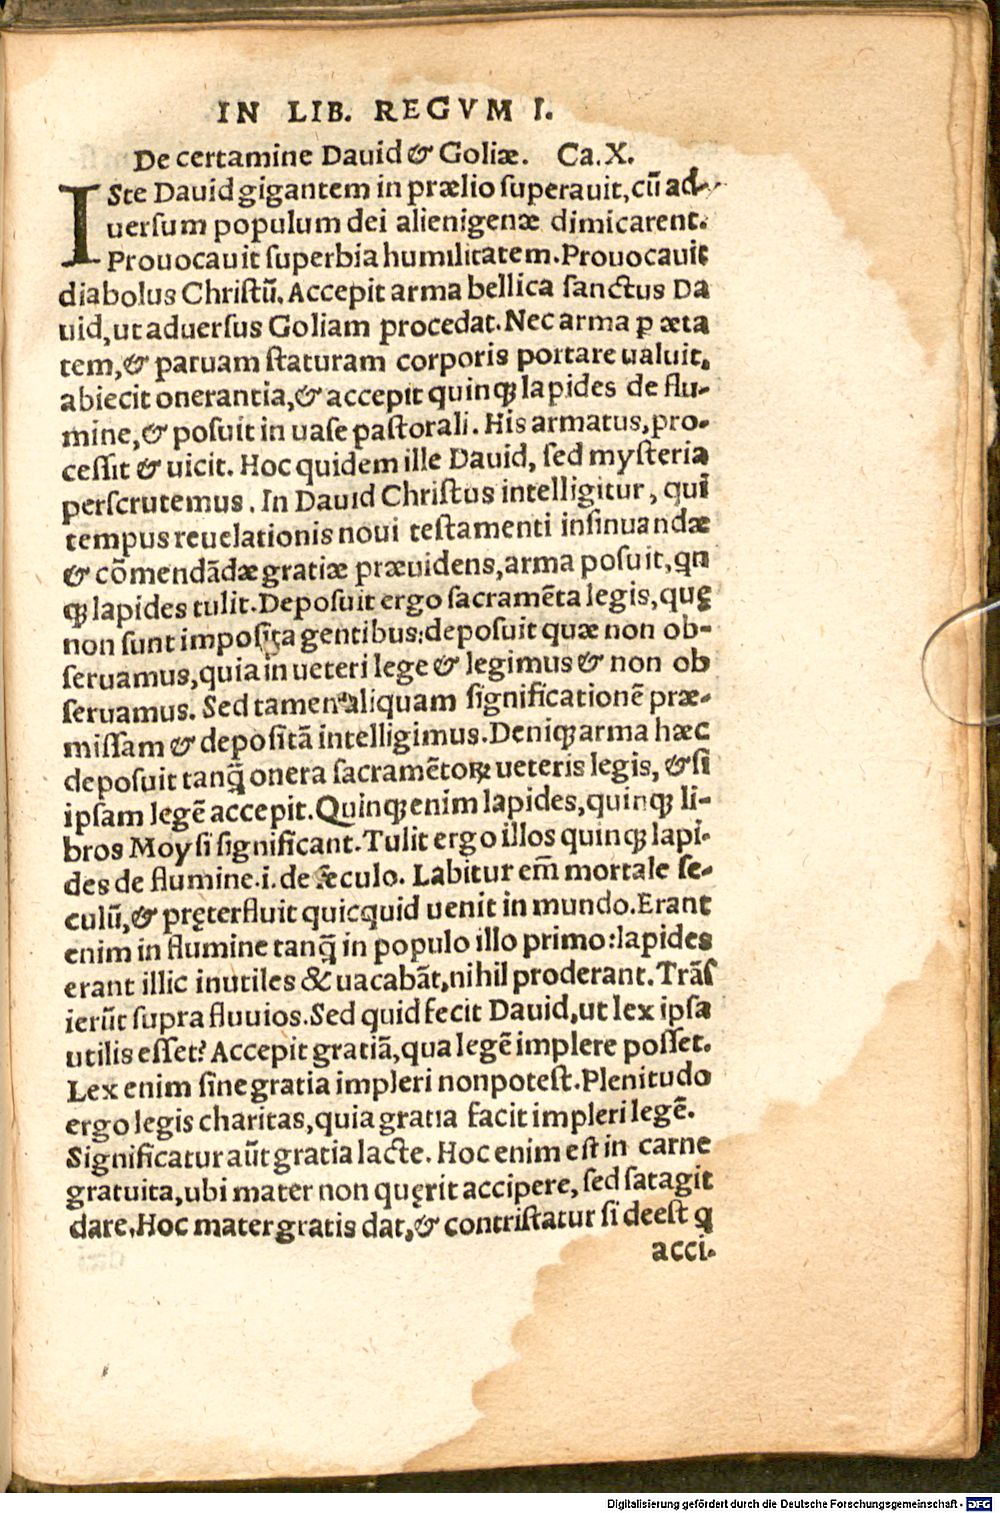 IN LIB. REGVM I.
De certamine Dauid & Goliæ. Ca. X.
ISte Dauid gigantem in prælio superauit, cū ad-
uersum populum dei alienigenæ dimicarent.
Prouocauit superbia humilitatem. Prouocauit
diabolus Christū. Accepit arma bellica sanctus Da
uid, ut aduersus Goliam procedat. Nec arma p æta
tem, & paruam staturam corporis portare ualuit.
abiecit onerantia, & accepit quinqꝫ lapides de flu-
mine, & posuit in uase pastorali. His armatus, pro-
cessit & uicit. Hoc quidem ille Dauid, sed mysteria
perscrutemus. In Dauid Christus intelligitur, qui
tempus reuelationis noui testamenti insinuandæ
& cōmendādæ gratiæ præuidens, arma posuit, qn
qꝫ lapides tulit. Deposuit ergo sacramēta legis, quę
non sunt imposita gentibus: deposuit quæ non ob-
seruamus, quia in ueteri lege & legimus & non ob
seruamus. Sed tamen aliquam significationē præ-
missam & depositā intelligimus. Deniqꝫ arma hæc
deposuit tanq̄ onera sacramētoꝝ ueteris legis, & si
ipsam legē accepit. Quinqꝫ enim lapides, quinqꝫ li-
bros Moysi significant. Tulit ergo illos quinqꝫ lapi-
des de flumine .i. de seculo. Labitur em̄ mortale se-
culū, & pręterfluit quicquid uenit in mundo. Erant
enim in flumine tanq̄ in populo illo primo: lapides
erant illic inutiles & uacabāt, nihil proderant. Trās
ierūt supra fluuios. Sed quid fecit Dauid, ut lex ipsa
utilis esset? Accepit gratiā, qua legē implere posset.
Lex enim sine gratia impleri non potest. Plenitudo
ergo legis charitas, quia gratia facit impleri legē.
Significatur aūt gratia lacte. Hoc enim est in carne
gratuita, ubi mater non quęrit accipere, sed satagit
dare. Hoc mater gratis dat, & contristatur si deest q
acci-
Digitalisierung gefördert durch die Deutsche Forschungsgemeinschaft - DFG